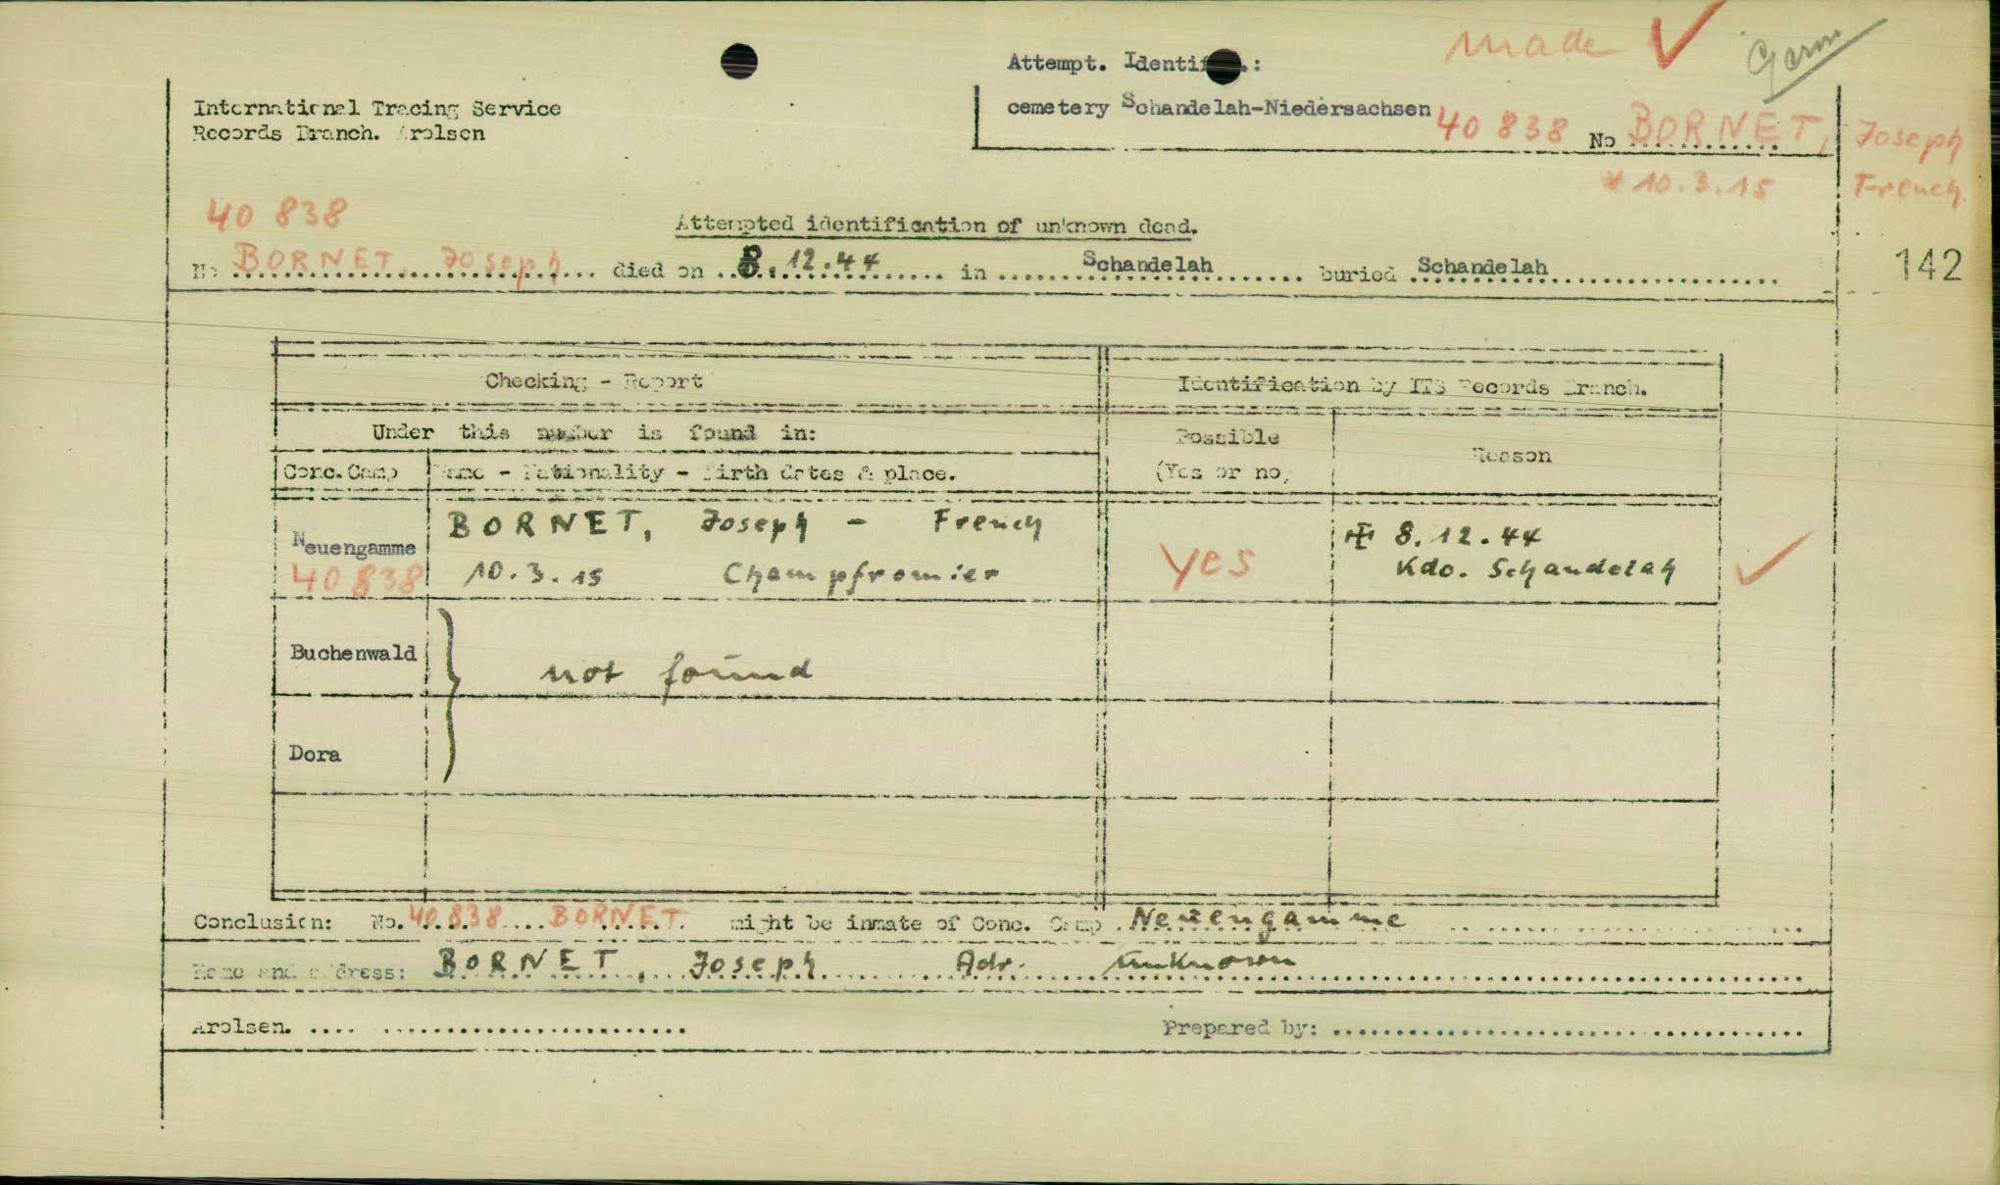 made ✓ Germ
Attempt. Identif.:
International Tracing Service
Records Branch. Arolsen
cemetery Schandelah-Niedersachsen 40 838 No BORNET, Joseph
* 10.3.15 French
40 838
Attempted identification of unknown dead.
No BORNET, Joseph died on 8.12.44 in Schandelah buried Schandelah
142
Checking - Report
Identification by ITS Records Branch.
Under this number is found in:
Possible
(Yes or no)
Reason
Conc.Camp
Name - Nationality - Birth dates & place.
Neuengamme
40 838
BORNET, Joseph - French
10.3.15 Champfromier
yes
8.12.44
Kdo. Schandelah
Buchenwald
not found
Dora
Conclusion: No. 40 838 BORNET might be inmate of Conc. Camp Neuengamme
Name and address: BORNET, Joseph Adr. unknown
Arolsen.
Prepared by: